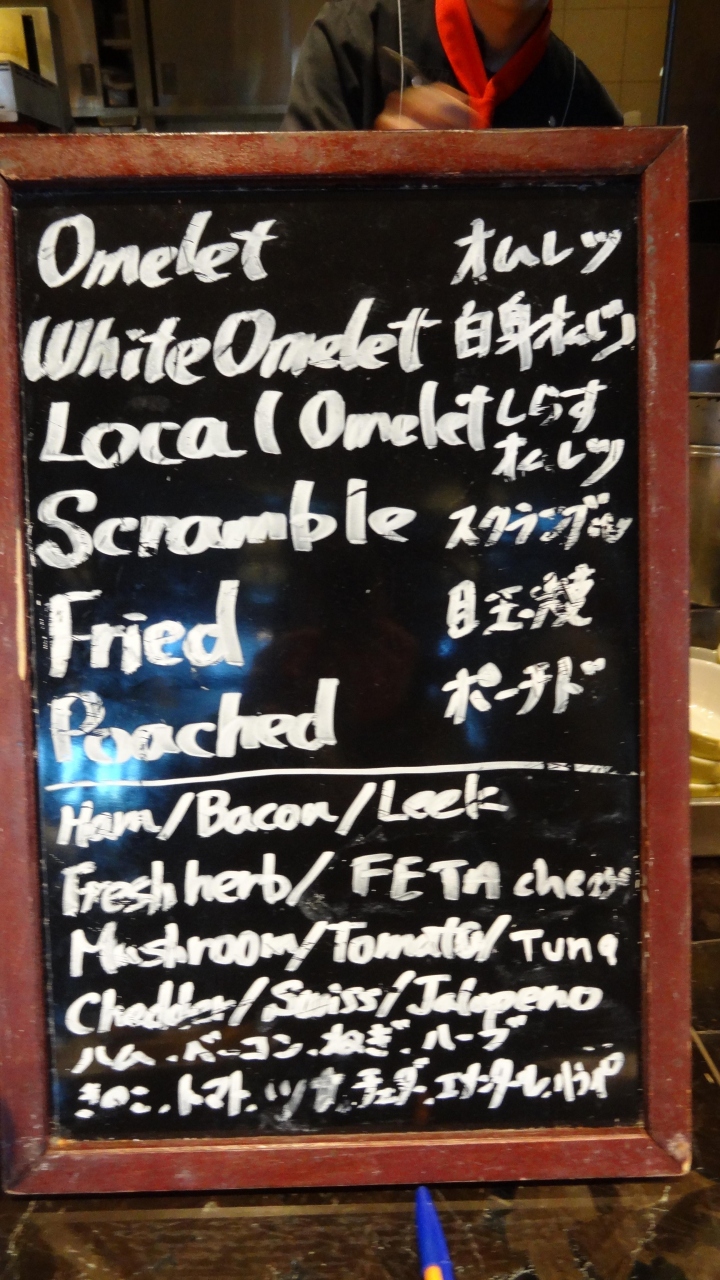 Omelet オムレツ
White Omelet 白身オムレツ
Local Omelet しらす
オムレツ
Scramble スクランブル
Fried 目玉焼
Poached ポーチド
Ham/Bacon/Leek
Fresh herb/ FETA cheese
Mushroom/Tomato/Tuna
Chedder/Swiss/Jalapeno
ハム.ベーコン.ねぎ.ハーブ
きのこ.トマト.ツナ.チェダー.エメンタール.